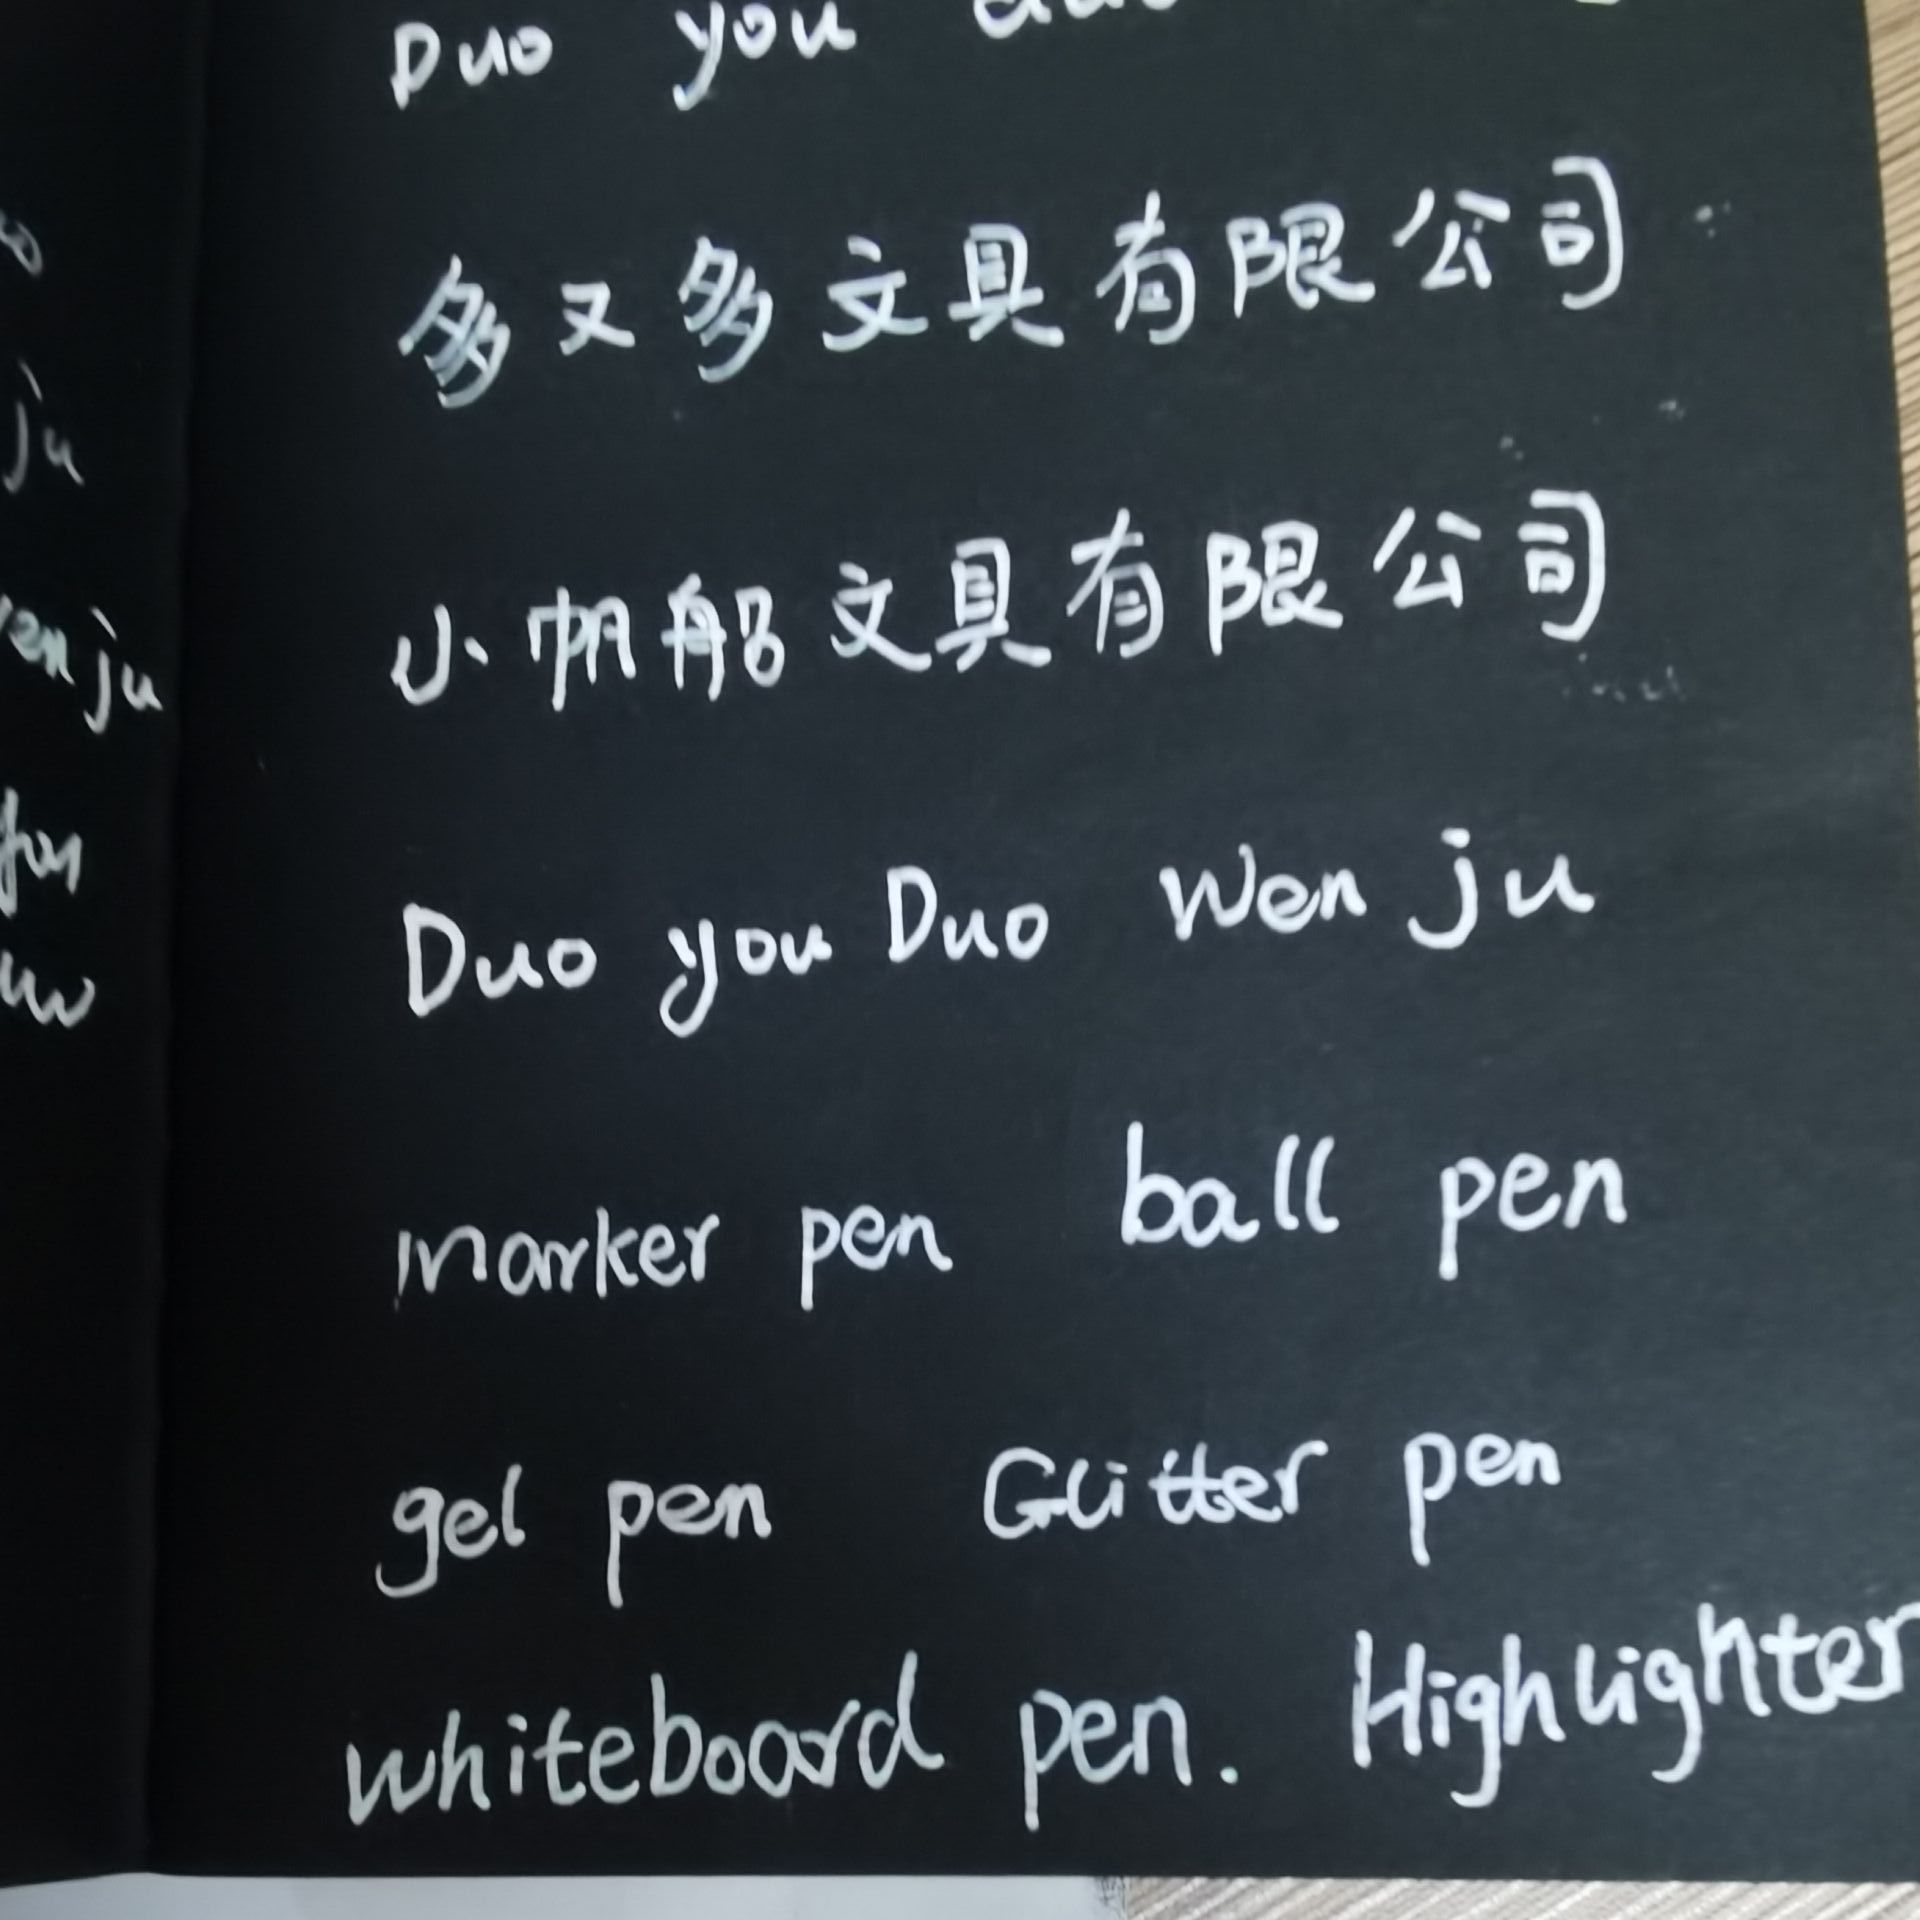 Duo you duo
多又多文具有限公司
小帆船文具有限公司
Duo you Duo Wen ju
marker pen ball pen
gel pen Glitter pen
whiteboard pen. Highlighter
ju
wen ju